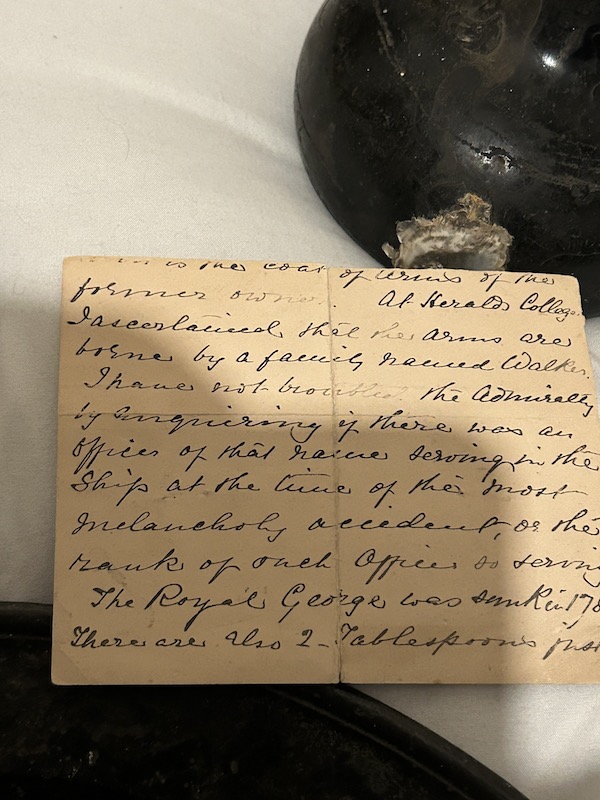 is the coat of arms of the
former owner. At Heralds College
I ascertained that the arms are
borne by a family named Walker.
I have not troubled the Admiralty
by enquiring if there was an
Officer of that name serving in the
Ship at the time of the most
melancholy accident, or the
rank of such Officer so serving
The Royal George was sunk in 178
There are also 2 - Tablespoons just